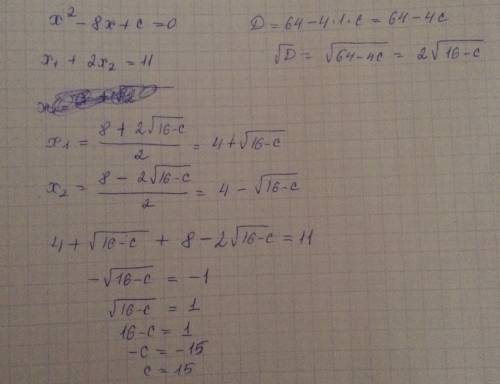 x² - 8x + c = 0
D = 64 - 4·1·c = 64 - 4c
x₁ + 2x₂ = 11
√D = √(64-4c) = 2√(16-c)
x₁ = (8 + 2√(16-c))/2 = 4 + √(16-c)
x₂ = (8 - 2√(16-c))/2 = 4 - √(16-c)
4 + √(16-c) + 8 - 2√(16-c) = 11
-√(16-c) = -1
√(16-c) = 1
16-c = 1
-c = -15
c = 15